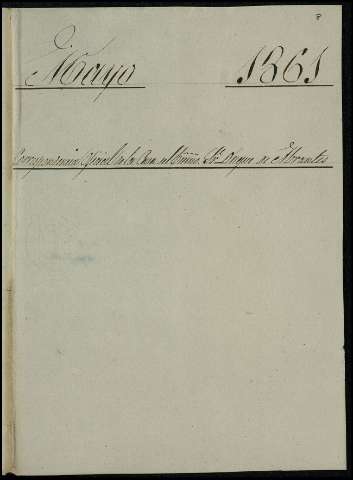 Mayo 1861
Correspondencia Oficial de la Casa del Exmo. Sr. Duque de Abrantes